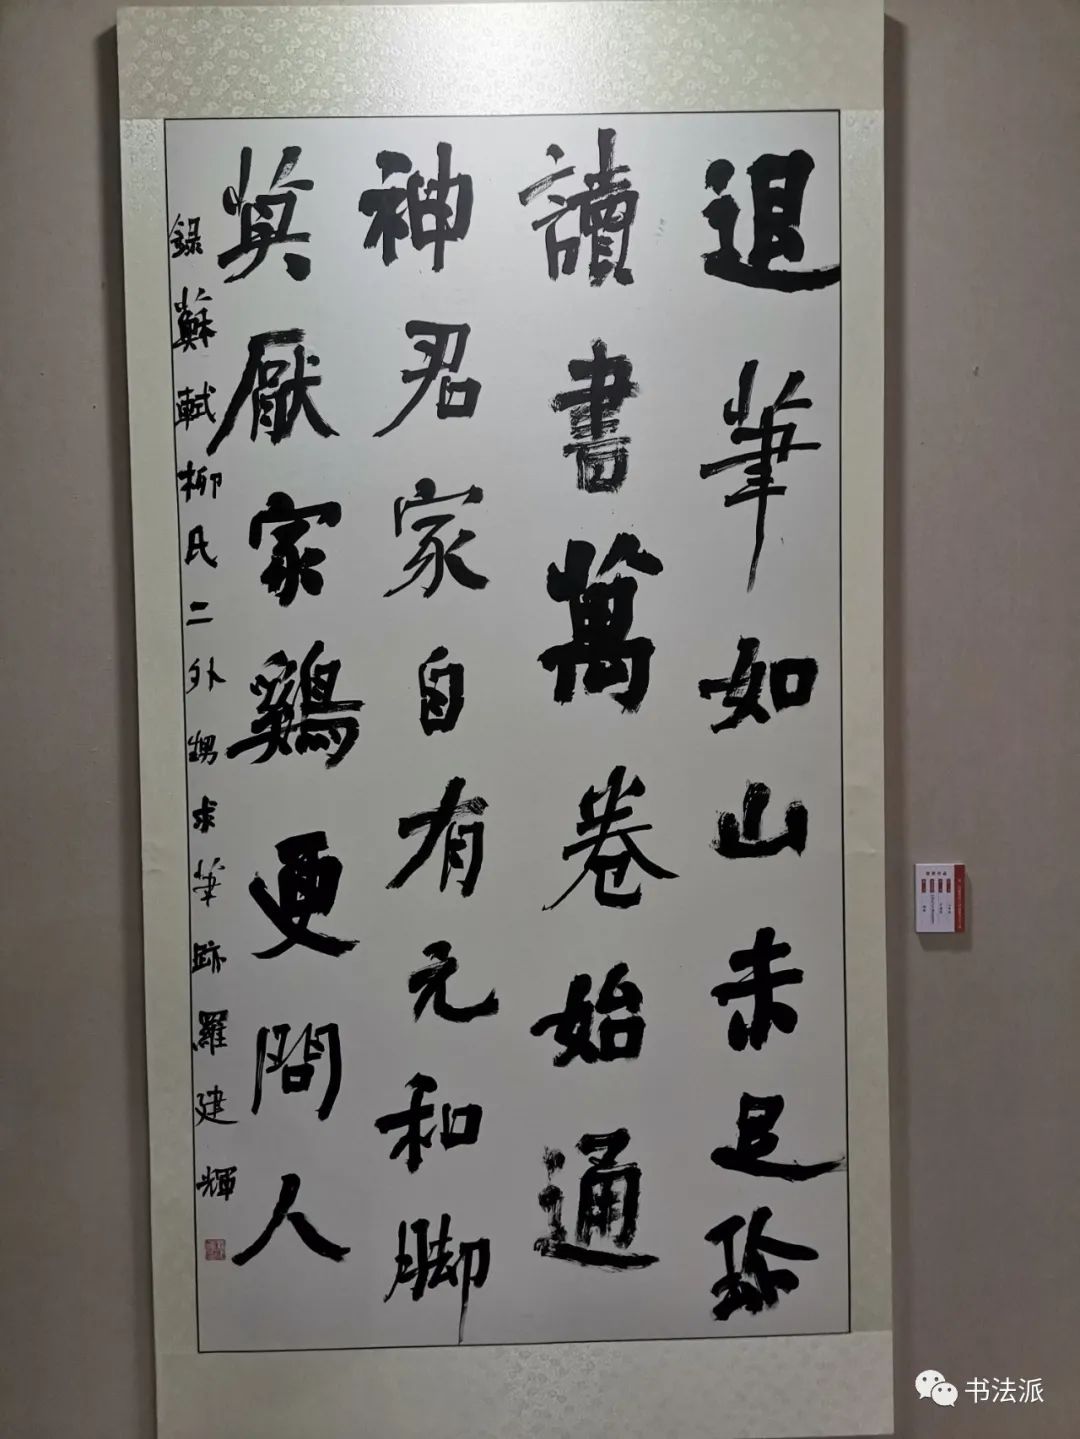 退筆如山未足珍
讀書萬卷始通
神君家自有元和脚
莫厭家鷄更問人
錄蘇軾柳氏二外甥求筆跡羅建輝
书法派